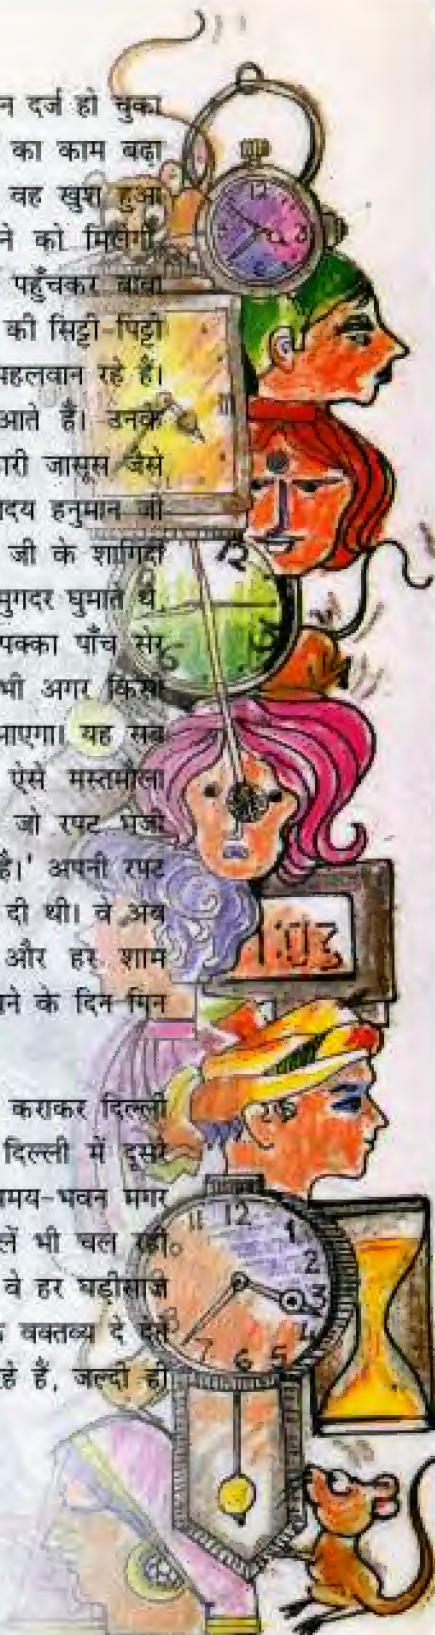 न दर्ज हो चुका
का काम बढ़ा
वह खुश हुआ
ने को मिलेगी,
पहुँचकर बाबा
की सिट्टी-पिट्टी
पहलवान रहे हैं।
आते हैं। उनके
जासूस जैसे
हनुमान जी
जी के शागिर्द
मुगदर घुमाते थे,
पक्का पाँच सेर
भी अगर किसी
आएगा। यह सब
ऐसे मस्तमौला
जो रपट
है।' अपनी रपट
दी थी। वे अब
और हर शाम
के दिन गिन
कराकर दिल्ली
दिल्ली में दूसरे
समय-भवन मगर
भी चल रही
वे हर घड़ीसाज
वक्तव्य दे देते
रहे हैं, जल्दी ही